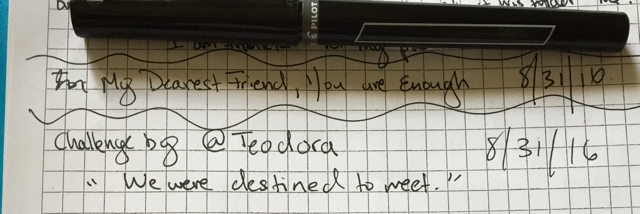 PILOT
For My Dearest Friend, You are Enough 8/31/16
Challenge by @Teodora 8/31/16
" We were destined to meet."